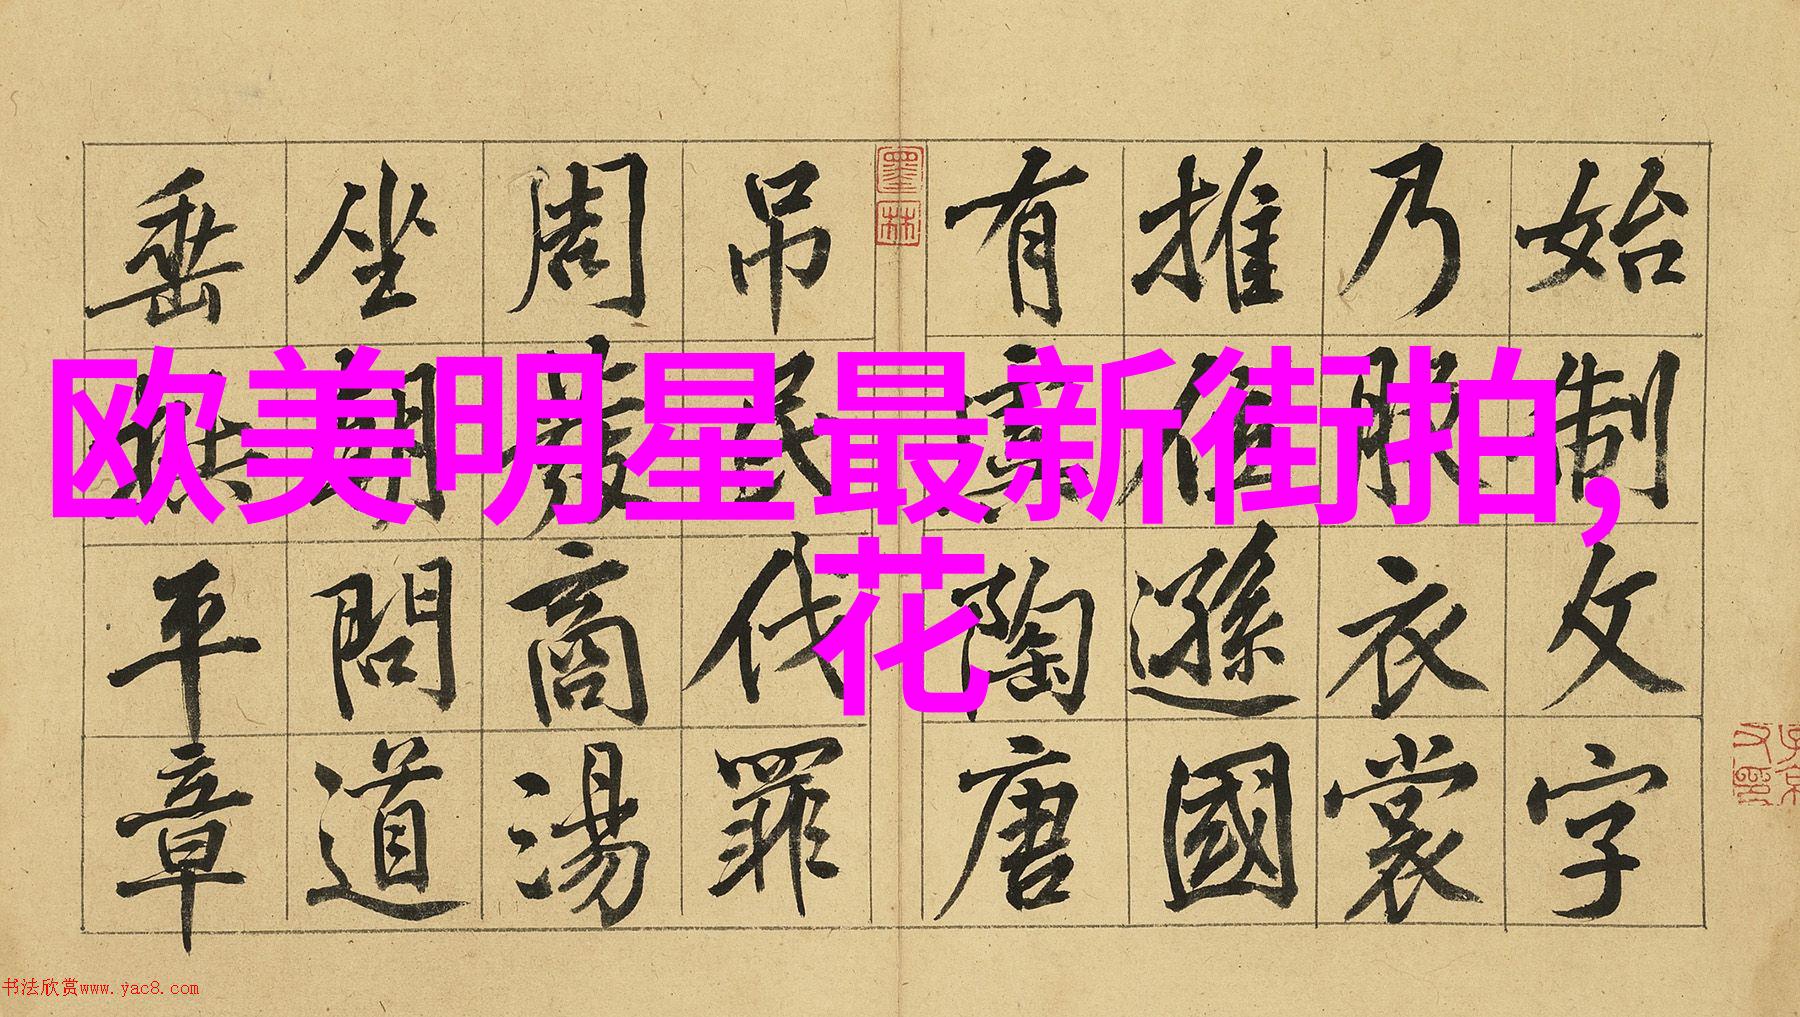 欧美明星最新街拍,
花
始制文字
乃服衣裳
推位遜國
有虞陶唐
吊民伐罪
周發商湯
坐朝問道
垂拱平章
墨林
书法欣赏www.yac8.com